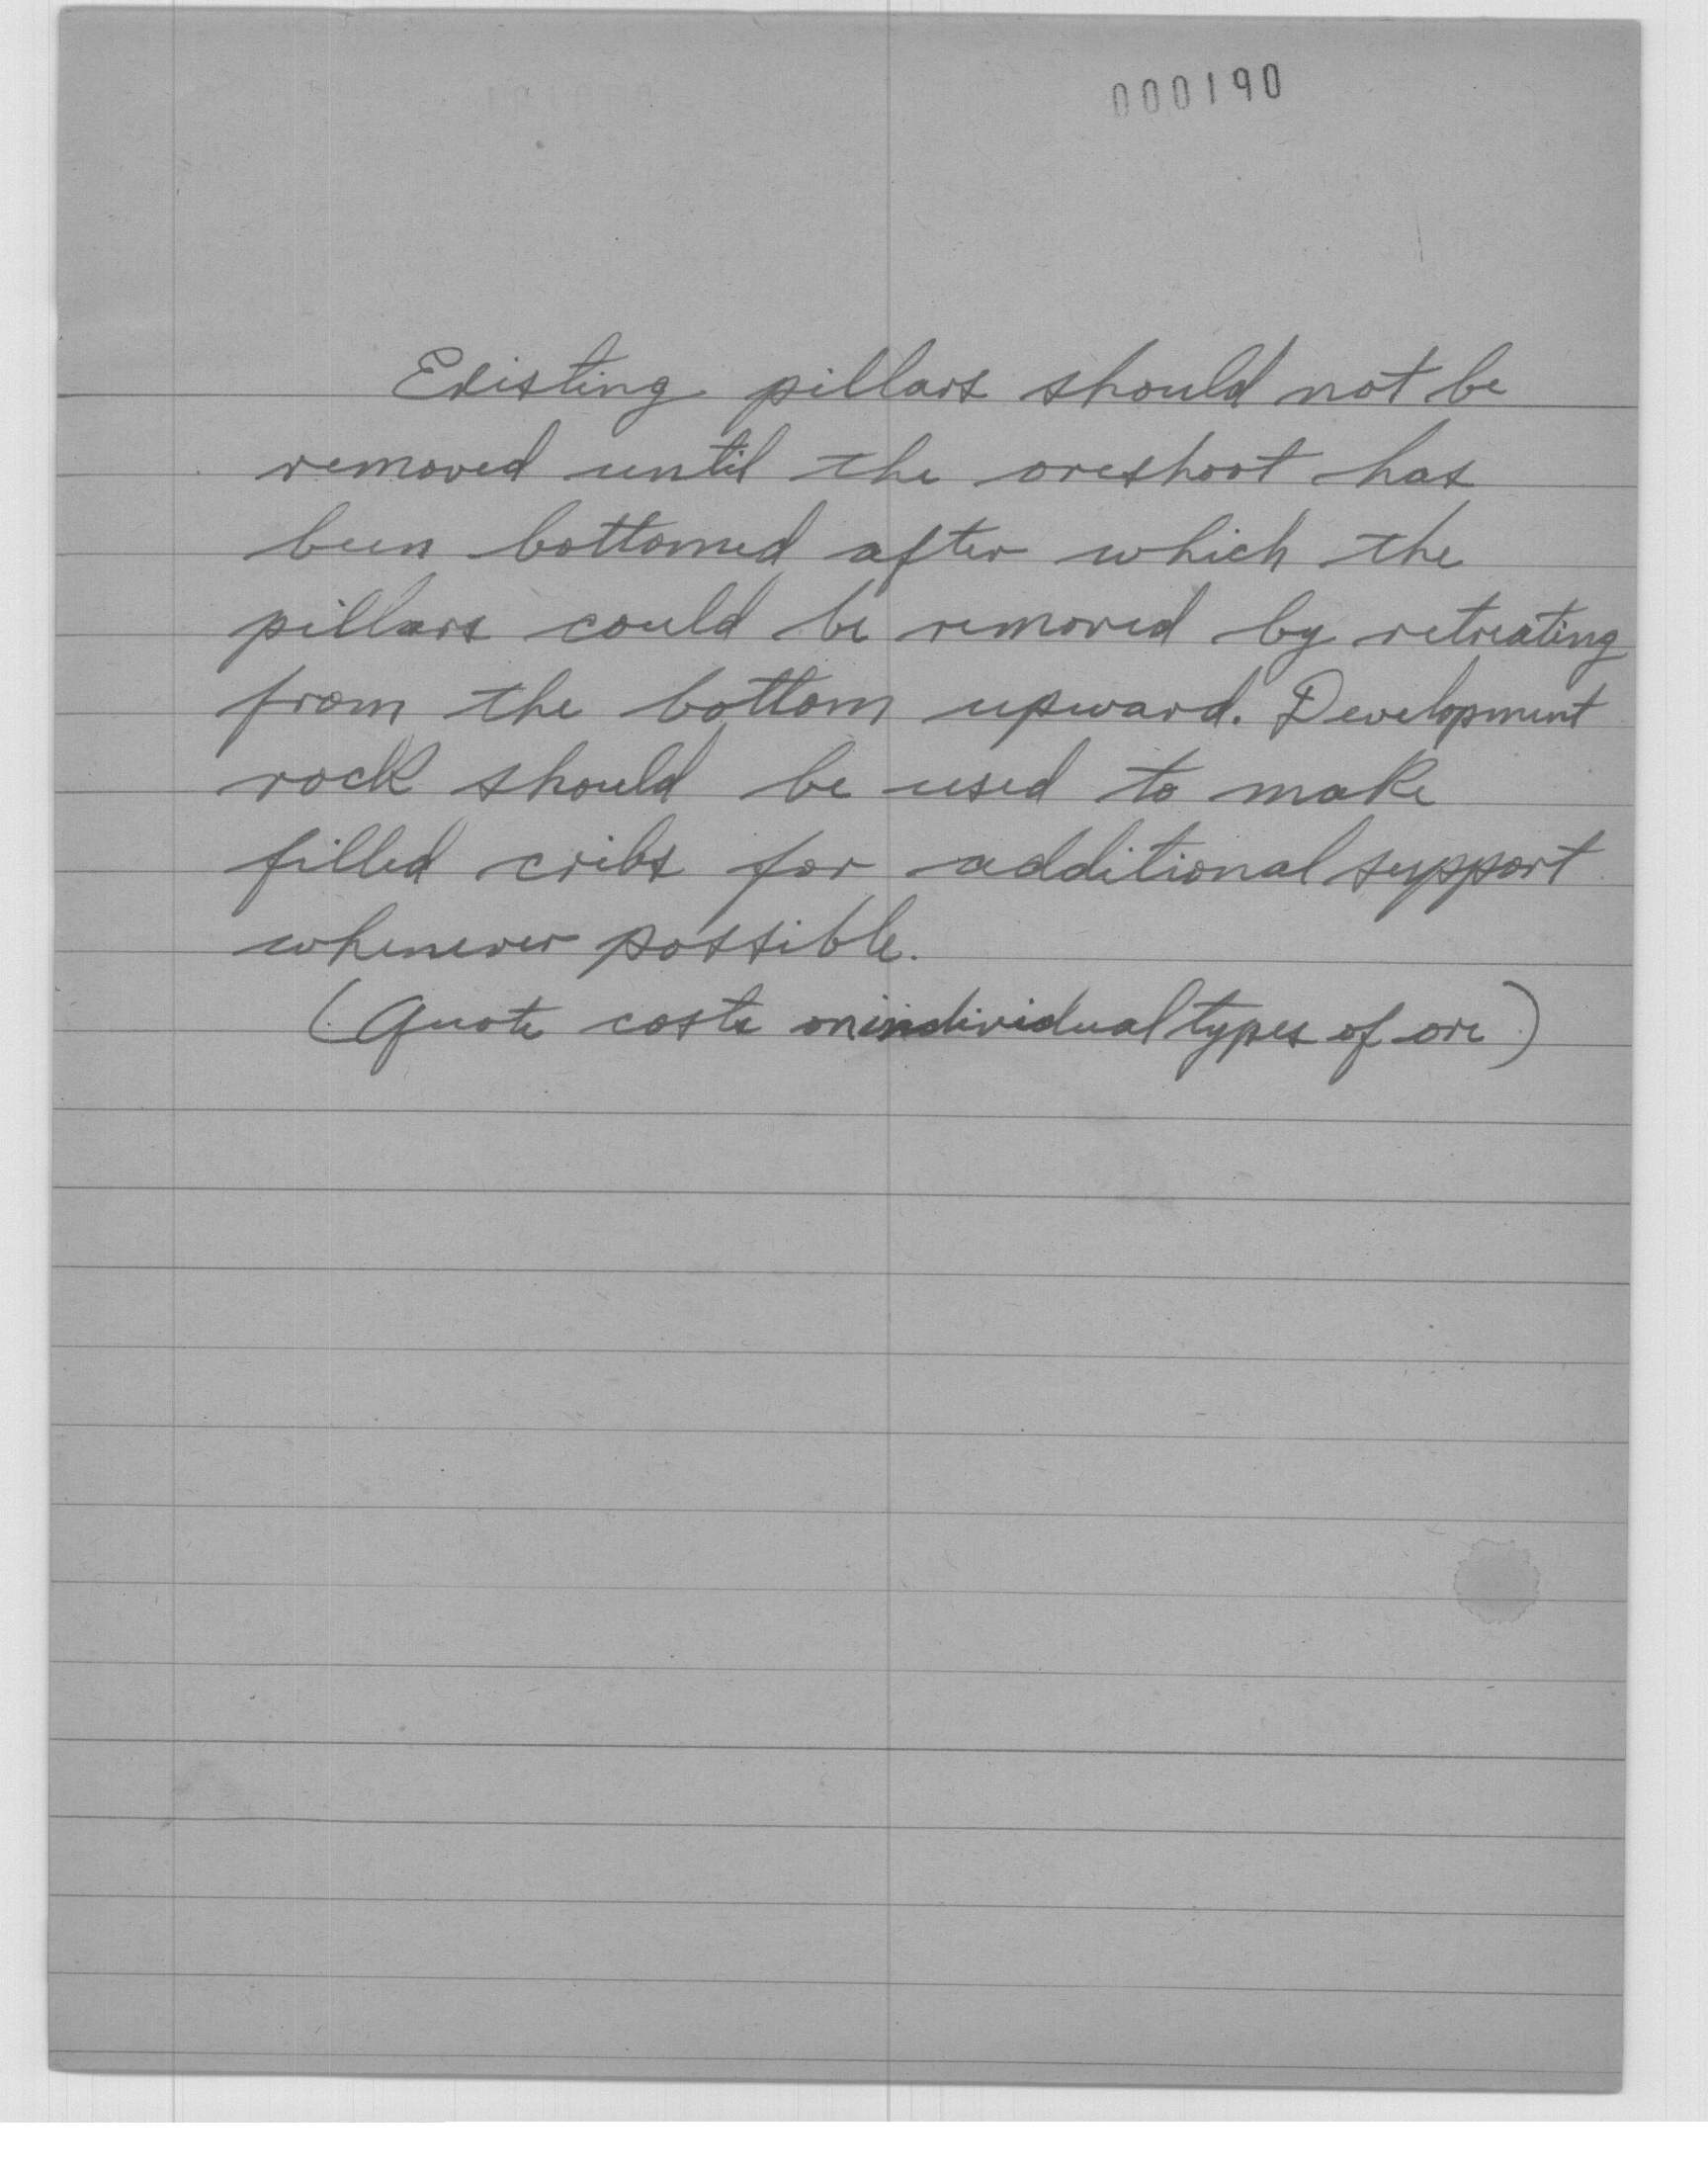 000190
Existing pillars should not be
removed until the oreshoot has
been bottomed after which the
pillars could be removed by retreating
from the bottom upward. Development
rock should be used to make
filled cribs for additional support
whenever possible.
(Quote costs on individual types of ore)